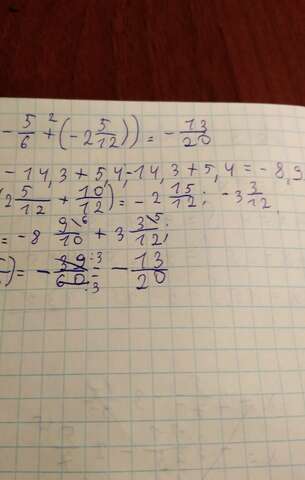 - 5/6 ² + (-2 5/12)) = - 13/20
- 14,3 + 5,4 - 14,3 + 5,4 = - 8,9
(2 5/12 + 10/12) = - 2 15/12; - 3 3/12;
= - 8 9\6/10 + 3 3\5/12;
) = - 39:3/60:3 = - 13/20